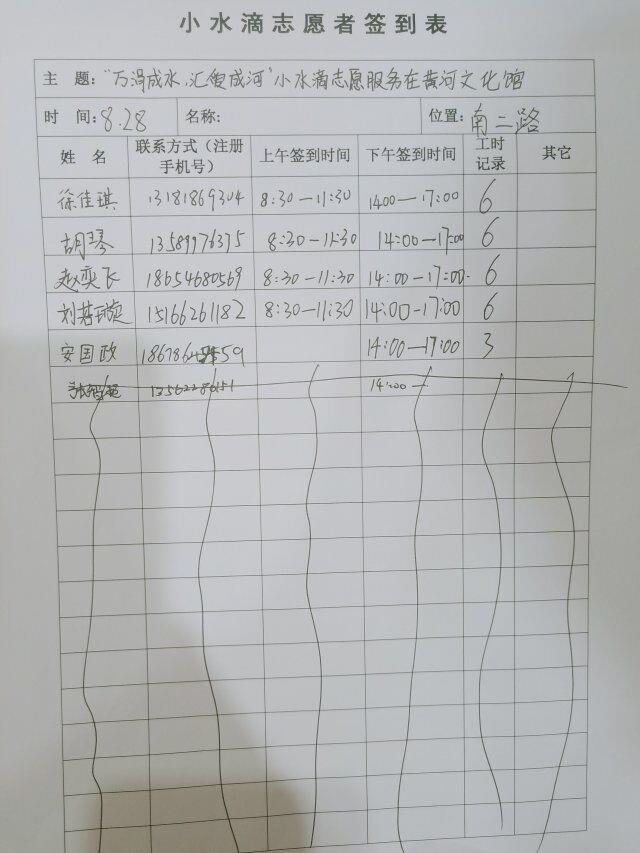 小水滴志愿者签到表
主 题: “万涓成水,汇聚成河”小水滴志愿服务在黄河文化馆
时 间: 8.28 名称: 位置: 南二路
姓 名 联系方式(注册手机号) 上午签到时间 下午签到时间 工时记录 其它
徐佳琪 13181869304 8:30—11:30 1400—17:00 6
胡琴 13589976375 8:30—11:30 14:00—17:00 6
赵奕飞 18654680569 8:30—11:30 14:00—17:00. 6
刘若璇 15166261182 8:30—11:30 14:00-17:00 6
安国政 14:00—17:00 3
14:00—